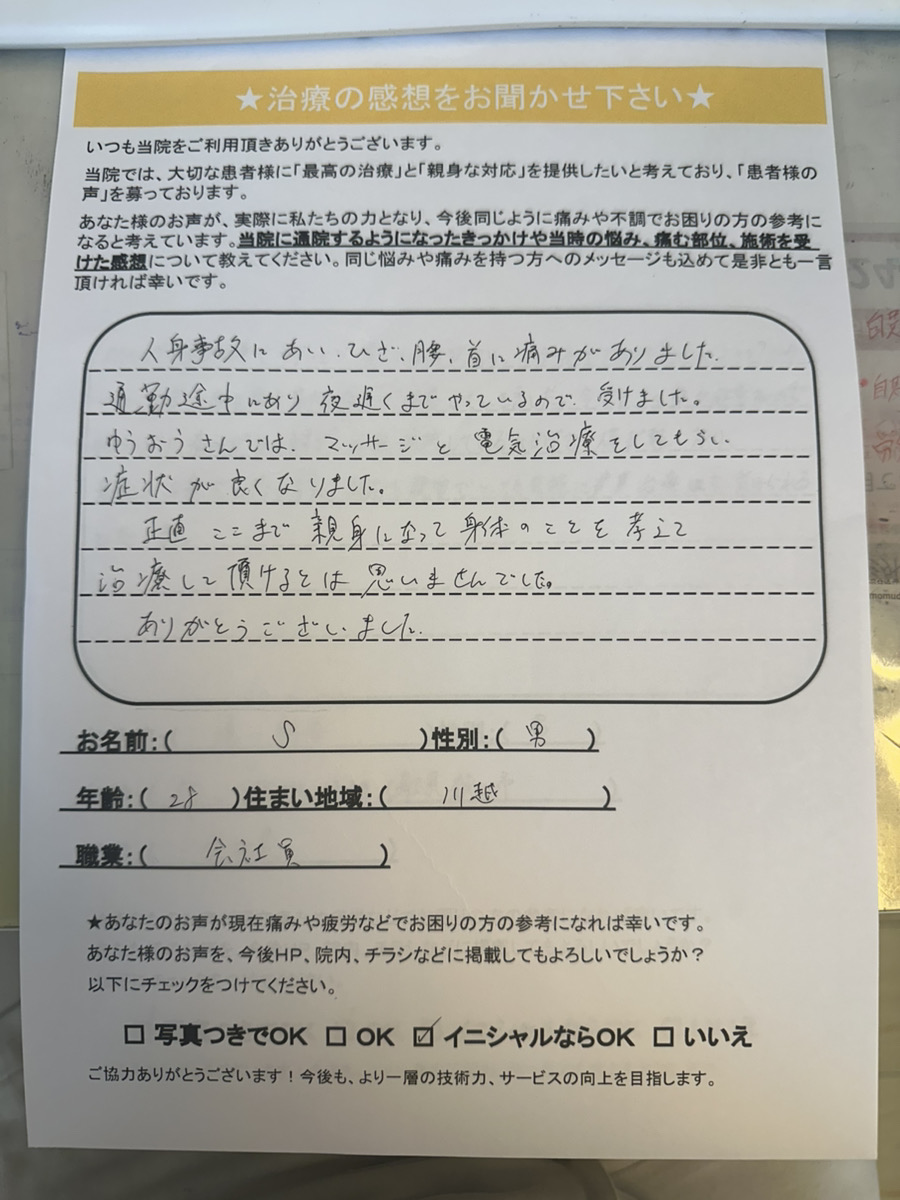 ★治療の感想をお聞かせ下さい★
いつも当院をご利用頂きありがとうございます。
当院では、大切な患者様に「最高の治療」と「親身な対応」を提供したいと考えており、「患者様の
声」を募っております。
あなた様のお声が、実際に私たちの力となり、今後同じように痛みや不調でお困りの方の参考に
なると考えています。当院に通院するようになったきっかけや当時の悩み、痛む部位、施術を受
けた感想について教えてください。同じ悩みや痛みを持つ方へのメッセージも込めて是非とも一言
頂ければ幸いです。
人身事故にあい、ひざ、腰、首に痛みがありました。
通勤途中にあり 夜遅くまでやっているので、受けました。
ゆうおうさんでは、マッサージと電気治療をしてもらい
症状が良くなりました。
正直ここまで親身になって身体のことを考えて
治療して頂けるとは思いませんでした。
ありがとうございました。
お名前:( S )性別:( 男 )
年齢:( 28 )住まい地域:( 川越 )
職業:( 会社員 )
★あなたのお声が現在痛みや疲労などでお困りの方の参考になれば幸いです。
あなた様のお声を、今後HP、院内、チラシなどに掲載してもよろしいでしょうか?
以下にチェックをつけてください。
☐ 写真つきでOK ☐ OK ☑ イニシャルならOK ☐ いいえ
ご協力ありがとうございます!今後も、より一層の技術力、サービスの向上を目指します。